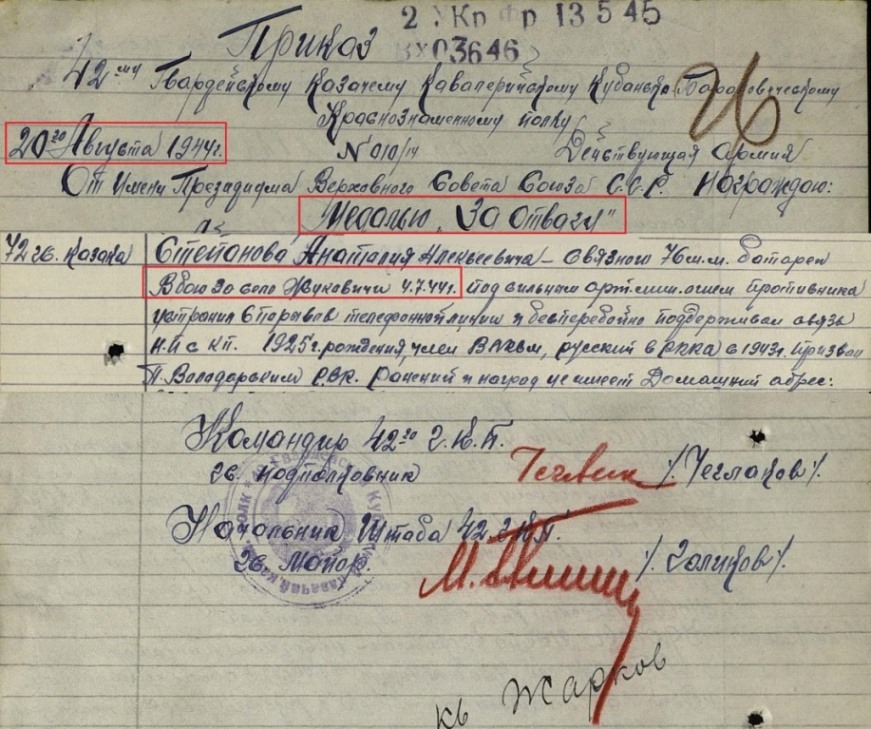 2 УКр Фр 13 5 45
Приказ
Вх03646
42му Гвардейскому Казачему Кавалерийскому Кубанско-Барановическому
Краснознаменному полку
20го Августа 1944г. N 010/н Действующая армия
От Имени Президиума Верховного Совета Союза С.С.Р. Награждаю:
Медалью „За Отвагу"
72 гв. Казака Степанова Анатолия Алексеевича – связного 76 м.м. батареи
В бою за село Жуковичи 4.7.44г. под сильным арт.мин.огнем противника
устранил 6 порывов телефонной линии и бесперебойно поддерживал связь
Н.П с К.П. 1925г. рождения, член ВЛКСМ, русский в РККА с 1943г. призван
П. Володарским РВК. Ранений и наград не имеет Домашний адрес:
Командир 42го Г.К.П.
гв. подполковник /Чеглаков/.
Начальник Штаба 42 ГКП.
гв. Майор. /Голиков/.
Жарков